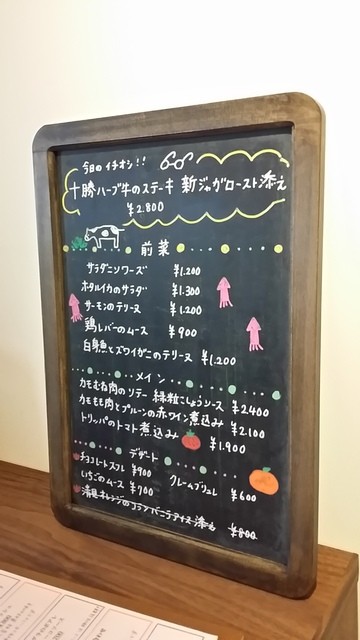 今日のイチオシ!!
十勝ハーブ牛のステーキ 新ジャガロースト添え
¥2.800
前菜
サラダニソワーズ ¥1.200
ホタルイカのサラダ ¥1.300
サーモンのテリーヌ ¥1.200
鶏レバーのムース ¥900
白身魚とズワイガニのテリーヌ ¥1.200
メイン
カモむね肉のソテー 緑粒こしょうソース ¥2400
カモもも肉とプルーンの赤ワイン煮込み ¥2.100
トリッパのトマト煮込み ¥1.900
デザート
チョコレートスフレ ¥900 クレームブリュレ ¥600
いちごのムース ¥700
清見オレンジのフラン バニラアイス添え ¥800